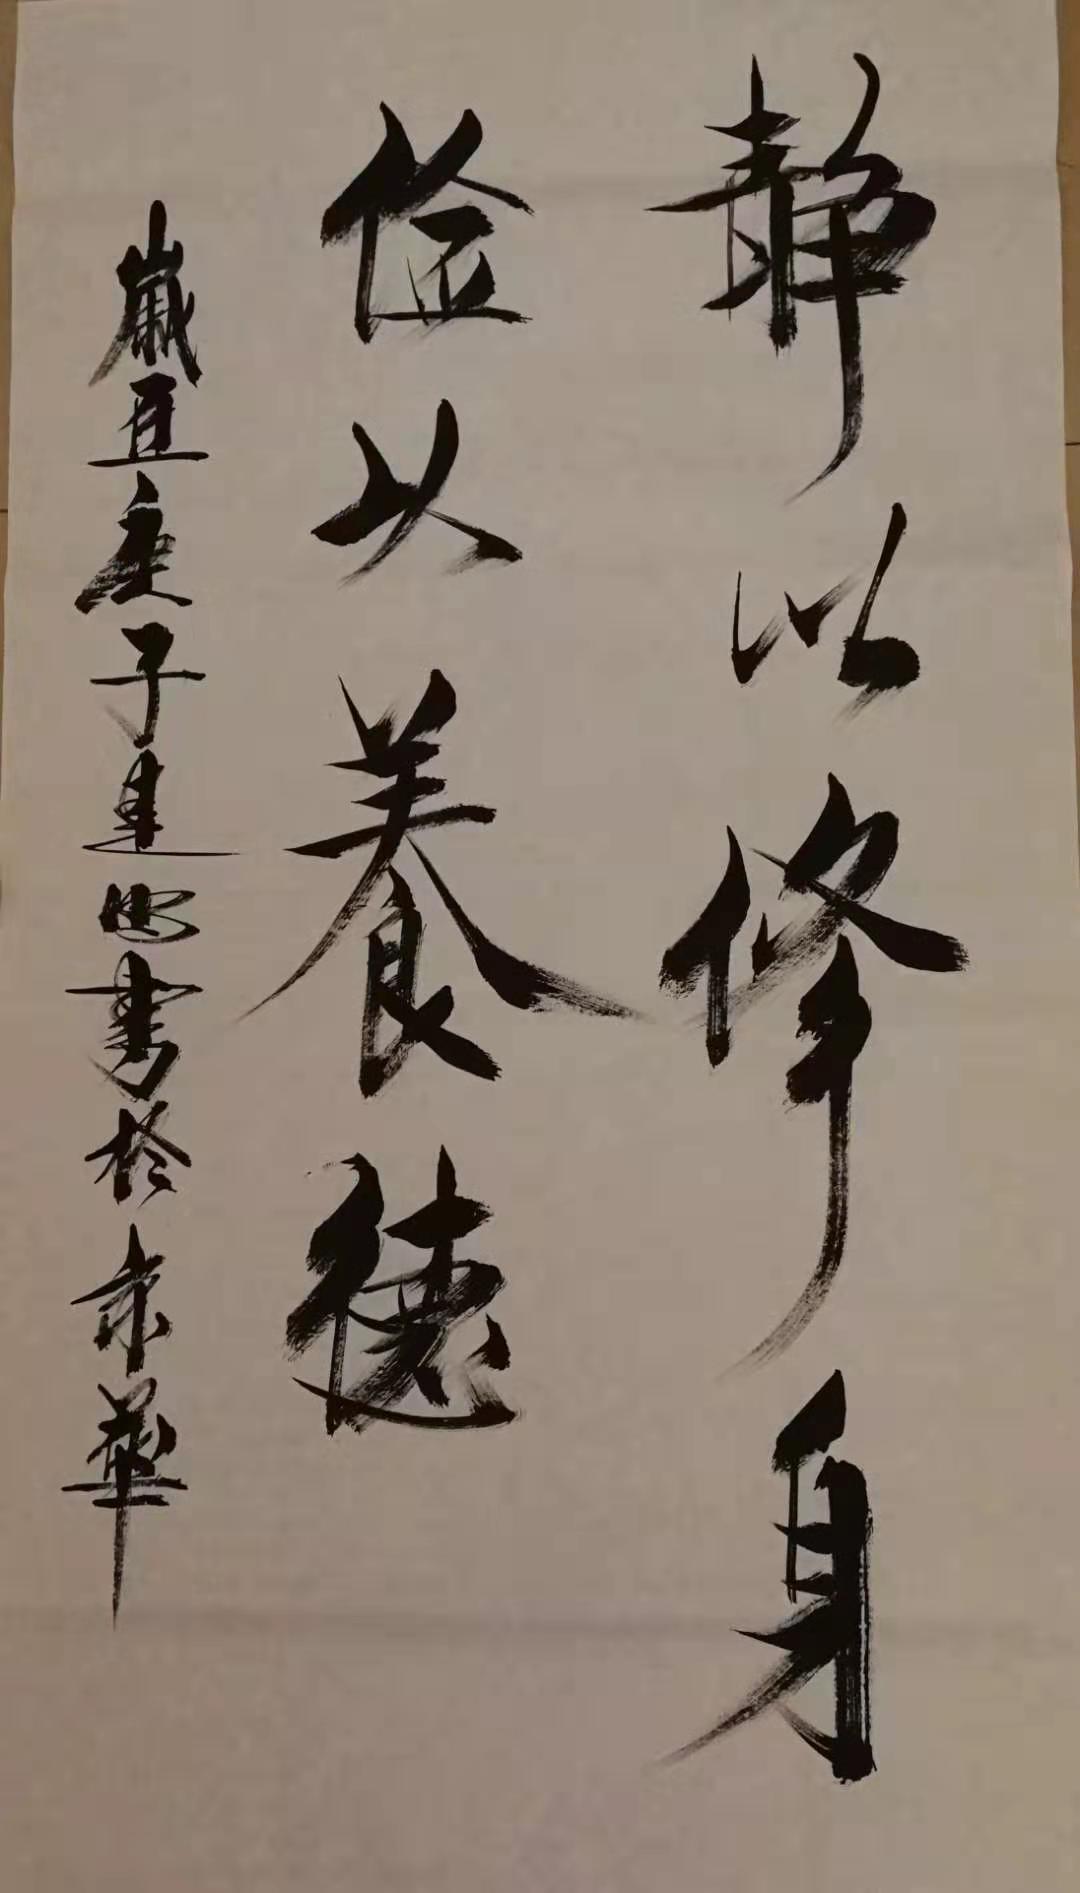 静以修身
俭以養德
歲直庚子建書於京華